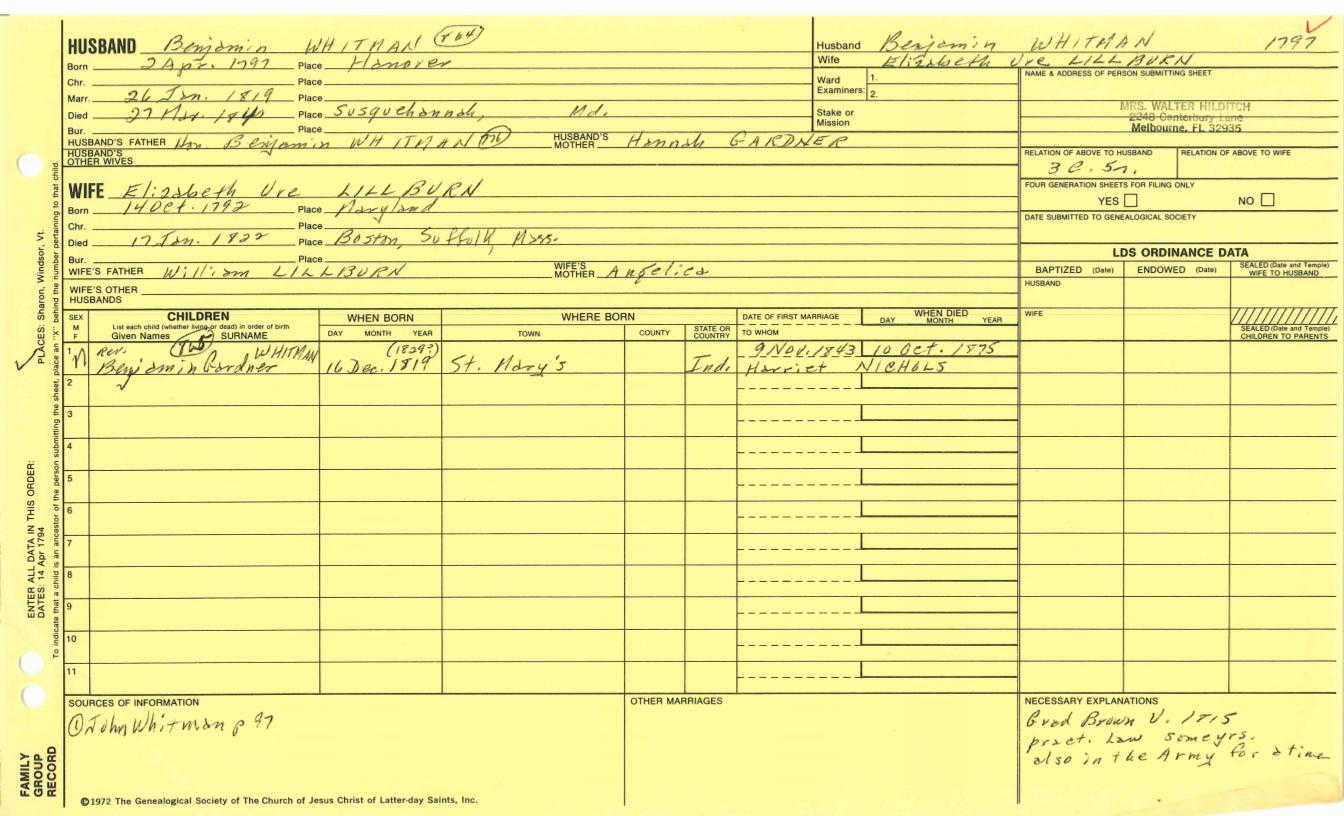 HUSBAND Benjamin WHITMAN 764
Born 2 Apr. 1797 Place Hanover
Chr. Place
Marr. 26 Jan. 1819 Place
Died 27 Mar. Place Susquehannah, Md.
Bur. Place
HUSBAND'S FATHER Hon Benjamin WHITMAN HUSBAND'S MOTHER Hannah GARDNER
HUSBAND'S OTHER WIVES
Husband Benjamin WHITMAN 1797
Wife Elizabeth Ure LILLBURN
Ward Examiners: 1.
2.
Stake or Mission
NAME & ADDRESS OF PERSON SUBMITTING SHEET
MRS. WALTER HILDITCH
2248 Canterbury Lane
Melbourne, FL 32935
RELATION OF ABOVE TO HUSBAND RELATION OF ABOVE TO WIFE
3 C. 5r.
FOUR GENERATION SHEETS FOR FILING ONLY
YES NO
DATE SUBMITTED TO GENEALOGICAL SOCIETY
WIFE Elizabeth Ure LILLBURN
Born 14 Oct. 1792 Place Maryland
Chr. Place
Died 17 Jan. 1822 Place Boston, Suffolk, Mass.
Bur. Place
WIFE'S FATHER William LILLBURN WIFE'S MOTHER Angelica
WIFE'S OTHER HUSBANDS
LDS ORDINANCE DATA
BAPTIZED (Date) ENDOWED (Date) SEALED (Date and Temple) WIFE TO HUSBAND
HUSBAND
WIFE
SEALED (Date and Temple)
CHILDREN TO PARENTS
SEX M F CHILDREN WHEN BORN WHERE BORN DATE OF FIRST MARRIAGE WHEN DIED
List each child (whether living or dead) in order of birth
Given Names SURNAME DAY MONTH YEAR TOWN COUNTY STATE OR COUNTRY TO WHOM DAY MONTH YEAR
1 M Rev. 765 WHITMAN (1829?) 9 Nov. 1843 10 Oct. 1875
Benjamin Gardner 16 Dec. 1819 St. Mary's Ind. Harriet NICHOLS
2
3
4
5
6
7
8
9
10
11
SOURCES OF INFORMATION
① John Whitman p 97
OTHER MARRIAGES
NECESSARY EXPLANATIONS
Grad Brown U. 1815
pract. Law some yrs.
also in the Army for a time
©1972 The Genealogical Society of The Church of Jesus Christ of Latter-day Saints, Inc.
FAMILY GROUP RECORD
ENTER ALL DATA IN THIS ORDER:
DATES: 14 Apr 1794 PLACES: Sharon, Windsor, Vt.
To indicate that a child is an ancestor of the person submitting the sheet, place an "X" behind the number pertaining to that child.